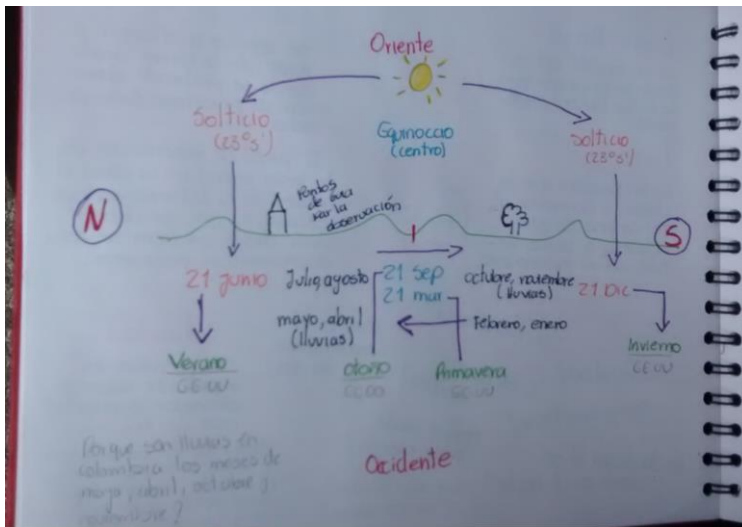 Oriente
Solticio
(23°5')
Equinoccio
(centro)
Solticio
(23°5')
Puntos
de
la
observación
N
S
21 Junio
Julio, agosto
21 sep
21 mar
octubre, noviembre
(lluvias)
21 Dic
mayo, abril
(lluvias)
Febrero, enero
Verano
EE.UU
otoño
EE.UU
Primavera
EE.UU
Invierno
EE.UU
Porque son lluvias en
colombia los meses de
mayo, abril, octubre y
noviembre?
Occidente